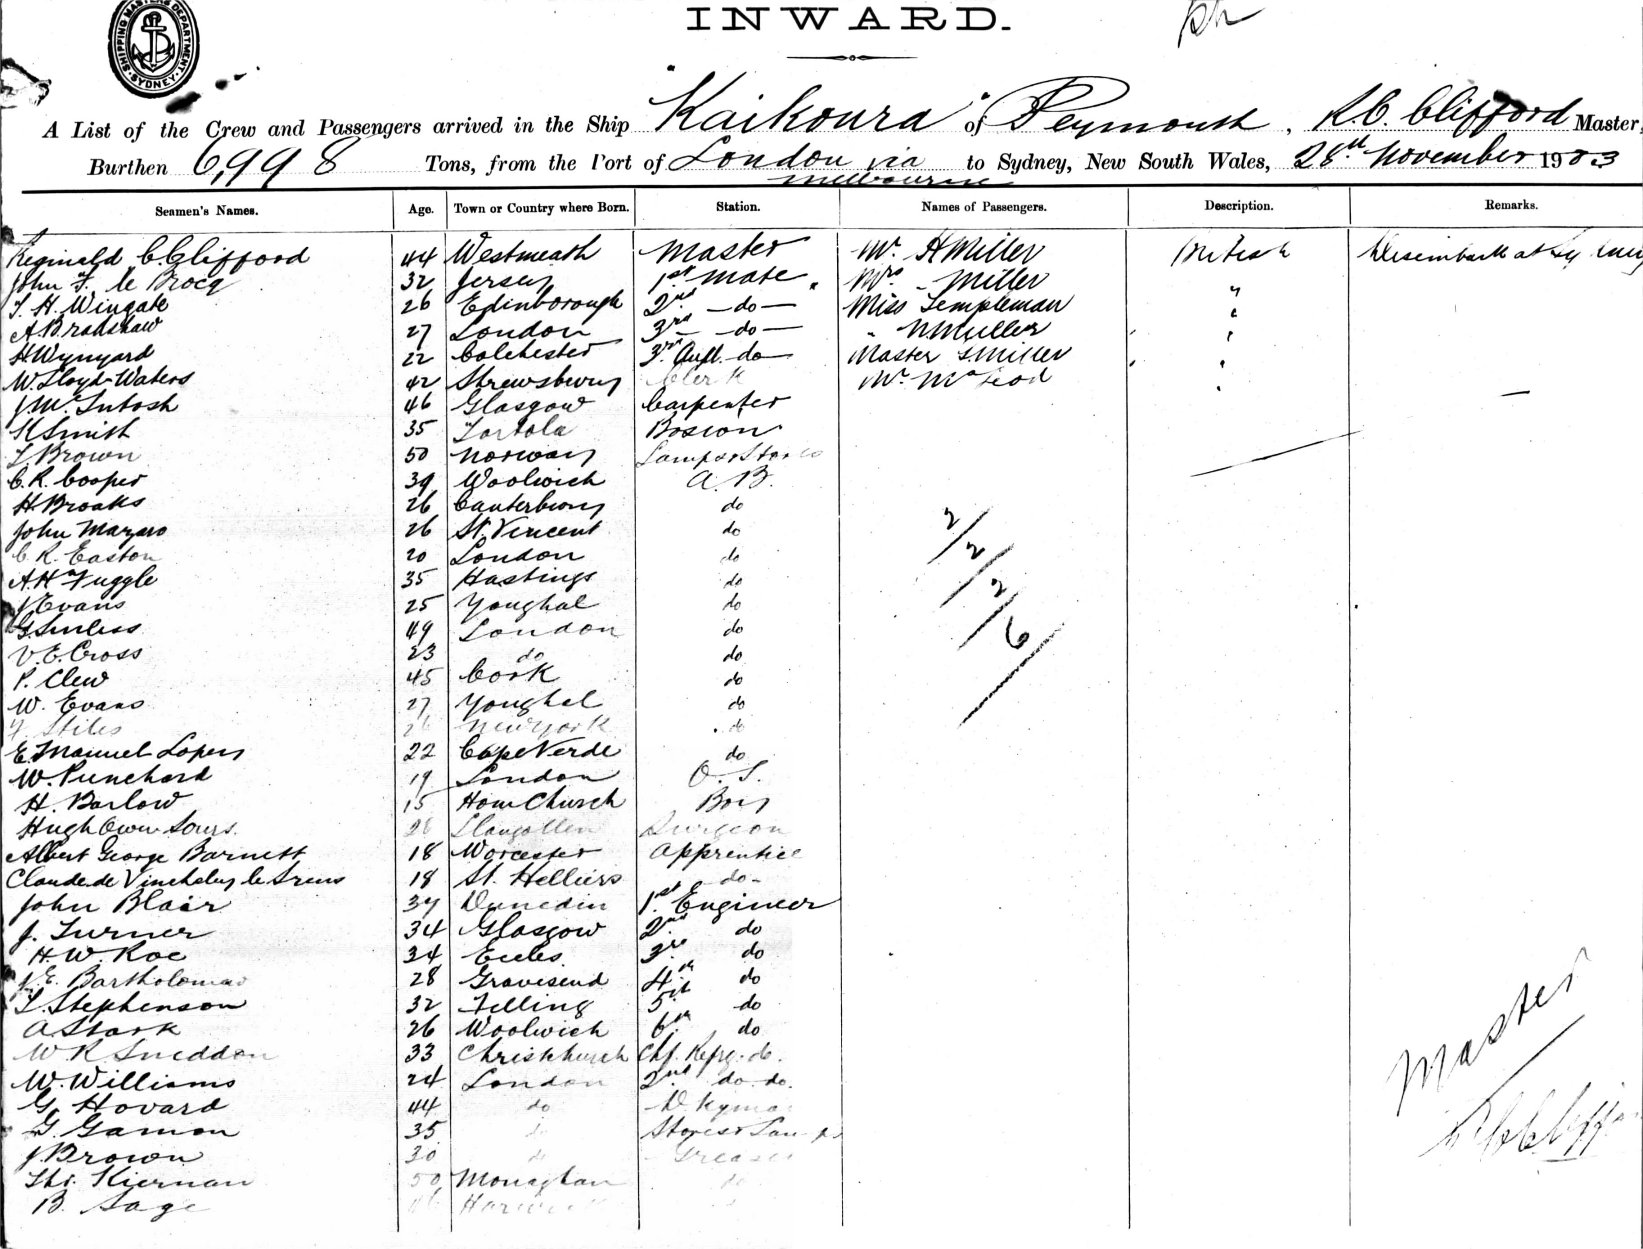 SHIPPING MASTER'S DEPARTMENT SYDNEY
INWARD.
A List of the Crew and Passengers arrived in the Ship "Kaikoura" of Plymouth, R.C. Clifford Master,
Burthen 6,998 Tons, from the Port of London via Melbourne to Sydney, New South Wales, 28th November 1903
Seamen's Names. Age. Town or Country where Born. Station. Names of Passengers. Description. Remarks.
Reginald C Clifford 44 Westmeath Master Mr. H Miller British Disembark at Sydney
John F. le Brocq 32 Jersey 1st Mate Mrs. Miller "
T. H. Wingate 26 Edinborough 2nd - do - Miss Templeman "
A Bradshaw 27 London 3rd - do - " N Miller "
H Wynyard 22 Colchester 3rd Auxl. do - Master S Miller "
W. Lloyd-Waters 42 Shrewsbury Clerk Mr. McLeod "
J. McIntosh 46 Glasgow Carpenter
K Smith 35 Tortola Boscon
T Brown 50 Norway Lamps & Stores
C. R. Cooper 39 Woolwich A. B.
H Brooks 26 Canterbury do
John 26 St. Vincent do
C R. Easton 20 London do
A H Fuggle 35 Hastings do
J Evans 25 Youghal do
G 49 London do
V. E. Cross 23 do do
P. Clew 45 Cork do
W. Evans 27 Youghal do
Stiles 26 New York do
E. Manuel Lopes 22 Cape Verde do
W. Punchard 19 London O. S.
H. Barlow 15 Hornchurch Boy
Hugh Owen 28 Llangollen Surgeon
Albert George Barnett 18 Worcester Apprentice
Claude de Vincheley le 18 St. Helliers - do -
John Blair 37 Dunedin 1st. Engineer
J. Turner 34 Glasgow 2nd. do
H. W. Roe 34 Eccles 3rd do
J. E. Bartholomew 28 Gravesend 4th do
T. Stephenson 32 Felling 5th do
A Stark 26 Woolwich 6th do
W. R Sneddon 33 Christchurch Chf. Refrg. do.
W. Williams 24 London 2nd. do. do.
G. Hovard 44 do
G. Gamon 35 do Stores & Lamps
J Brown 30 do Greaser
Thos. Kiernan 50 Monaghan do
B. Sage 46
2/2/2/6
Master
R C Cliffo